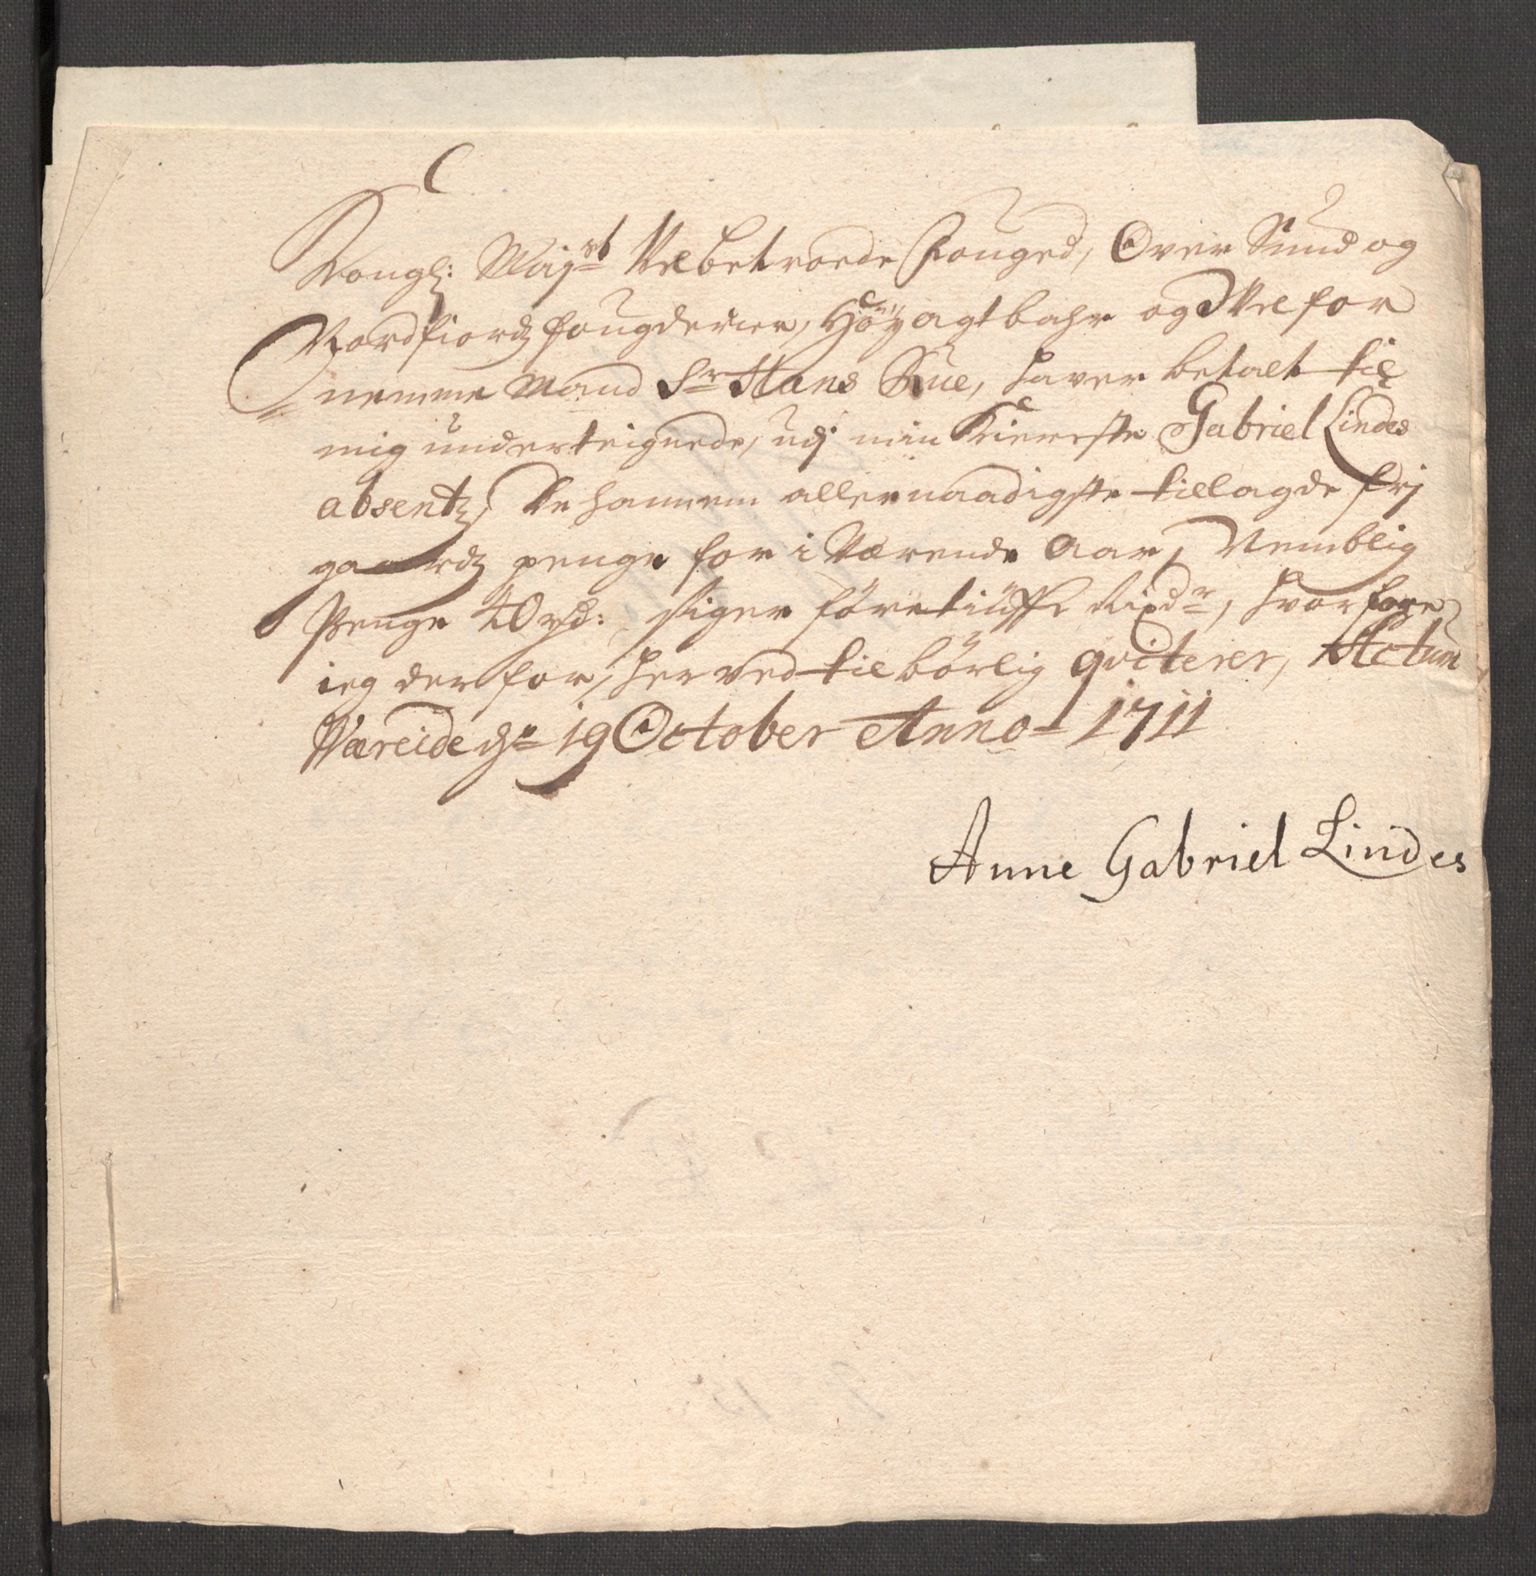 Kongl: Maj.st Velbetroede Fouged, Over Sund og
Nordfiordz fougderier, Høyagtbahr og Velfor
nemme Mand Sr Hans Rue, haver betalt til
mig underteignede, udj min Kiereste Gabriel Lindes
absentz, De hannem allernaadigste tillagde frj
gaardz penge for i Værende Aar, Nemblig
Penge 40 rd: siger førretiuffe Rixdr, hvorfore
ieg derfor, herved tilbørlig qviterer, Actum
Væreide d. 19 October Anno 1711
Anne Gabriel Lindes